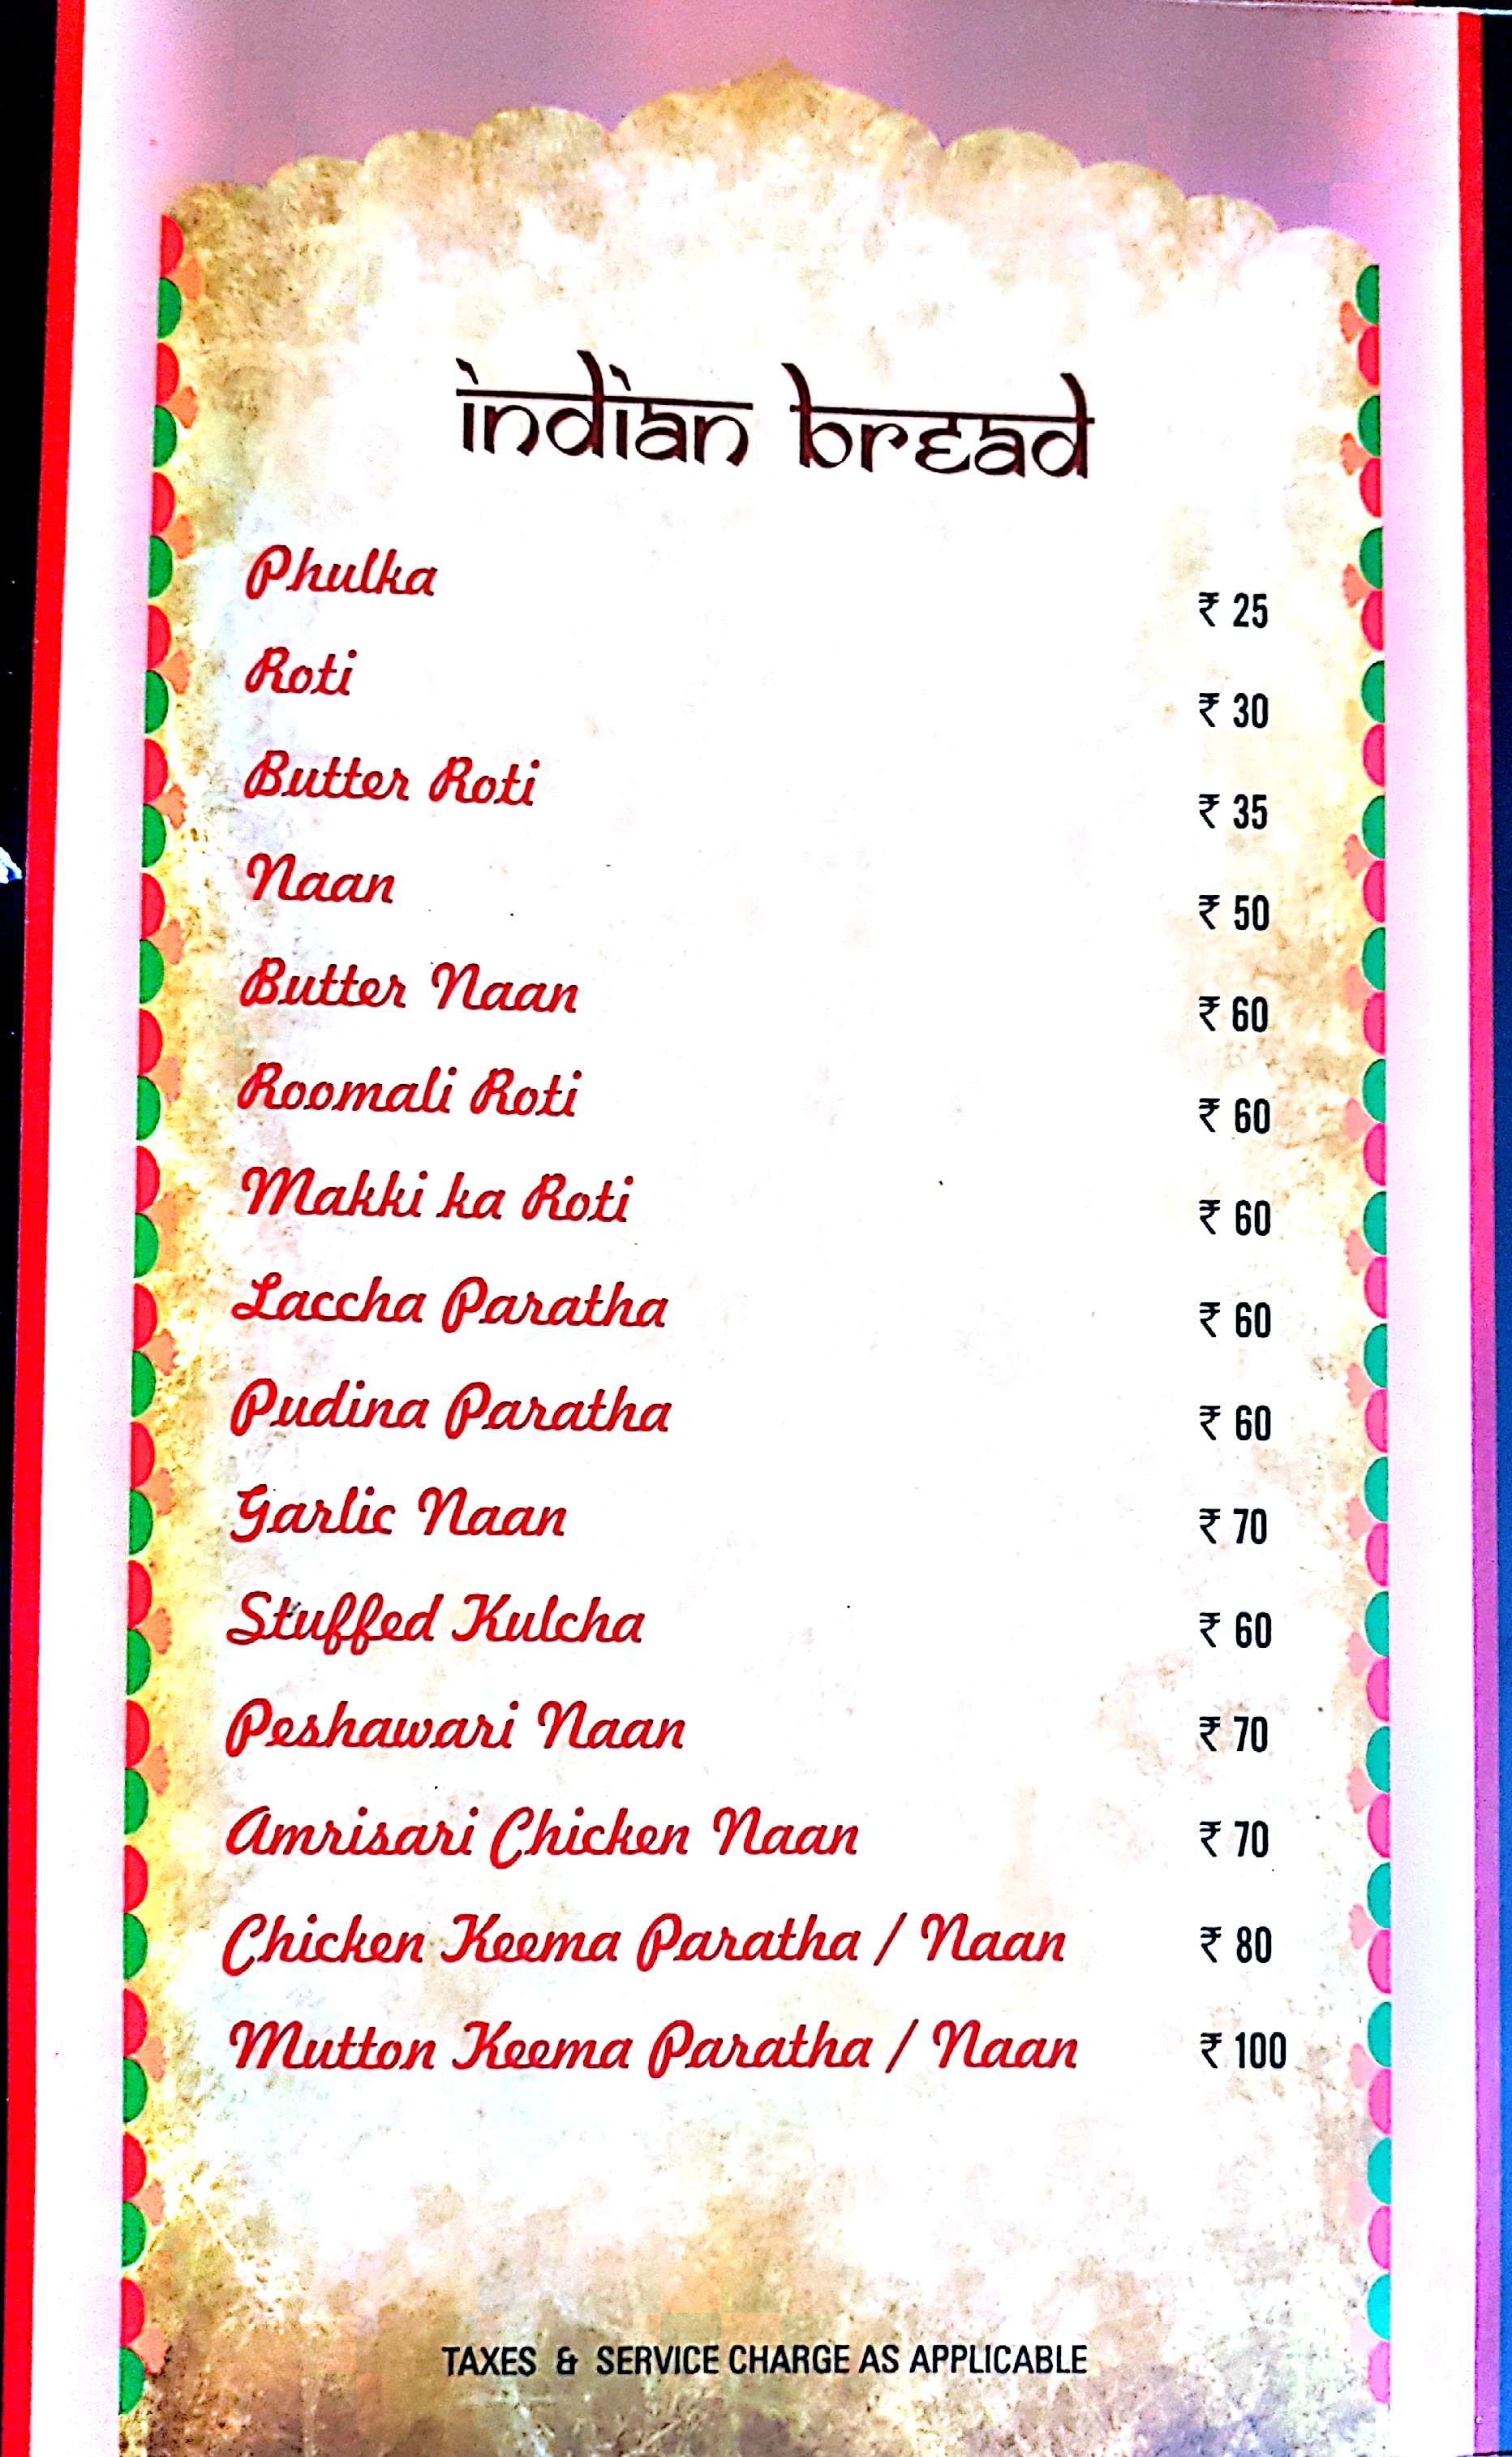 indian bread
Phulka ₹ 25
Roti ₹ 30
Butter Roti ₹ 35
Naan ₹ 50
Butter Naan ₹ 60
Roomali Roti ₹ 60
Makki ka Roti ₹ 60
Laccha Paratha ₹ 60
Pudina Paratha ₹ 60
Garlic Naan ₹ 70
Stuffed Kulcha ₹ 60
Peshawari Naan ₹ 70
Amrisari Chicken Naan ₹ 70
Chicken Keema Paratha / Naan ₹ 80
Mutton Keema Paratha / Naan ₹ 100
TAXES & SERVICE CHARGE AS APPLICABLE